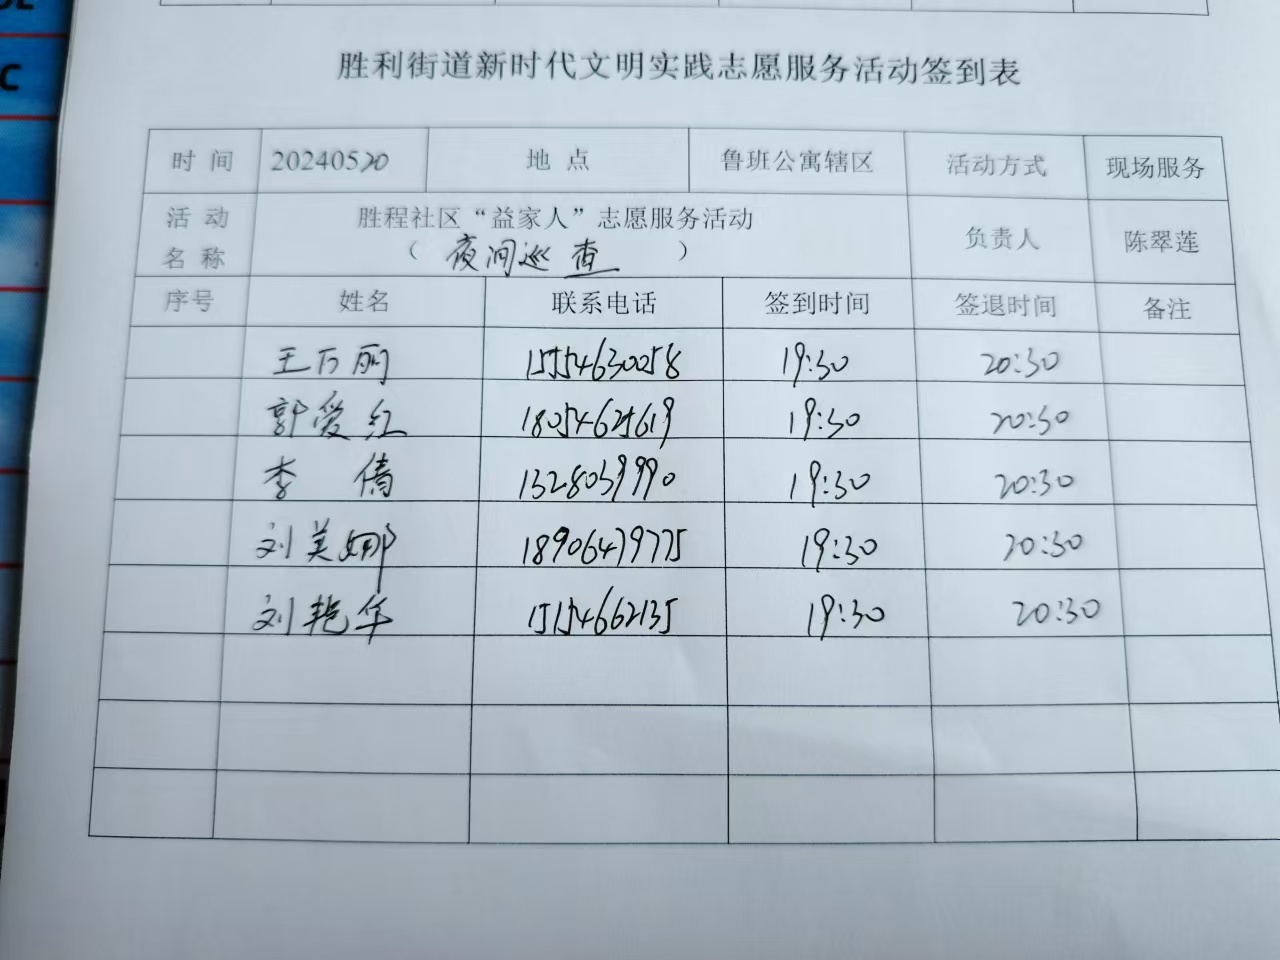 C
胜利街道新时代文明实践志愿服务活动签到表
时 间 20240520 地 点 鲁班公寓辖区 活动方式 现场服务
活 动 名 称 胜程社区“益家人”志愿服务活动 负责人 陈翠莲
（ 夜间巡查 ）
序号 姓名 联系电话 签到时间 签退时间 备注
王万丽 15554630058 19:30 20:30
郭爱红 18054625619 19:30 20:30
李 倩 1328039990 19:30 20:30
刘美娜 18906479775 19:30 20:30
刘艳华 15154662135 19:30 20:30